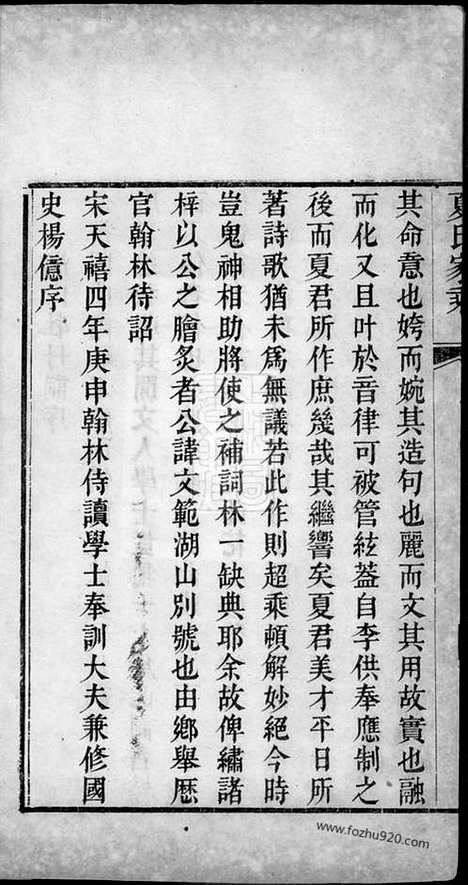 夏氏家乘
其命意也姱而婉其造句也麗而文其用故實也融
而化又且叶於音律可被管絃蓋自李供奉應制之
後而夏君所作庶幾哉其繼響矣夏君美才平日所
著詩歌猶未爲無議若此作則超乘頓解妙絕今時
豈鬼神相助將使之補詞林一缺典耶余故俾繡諸
梓以公之膾炙者公諱文範湖山別號也由鄉舉歷
官翰林待詔
宋天禧四年庚申翰林侍讀學士奉訓大夫兼修國
史楊億序
www.fozhu920.com